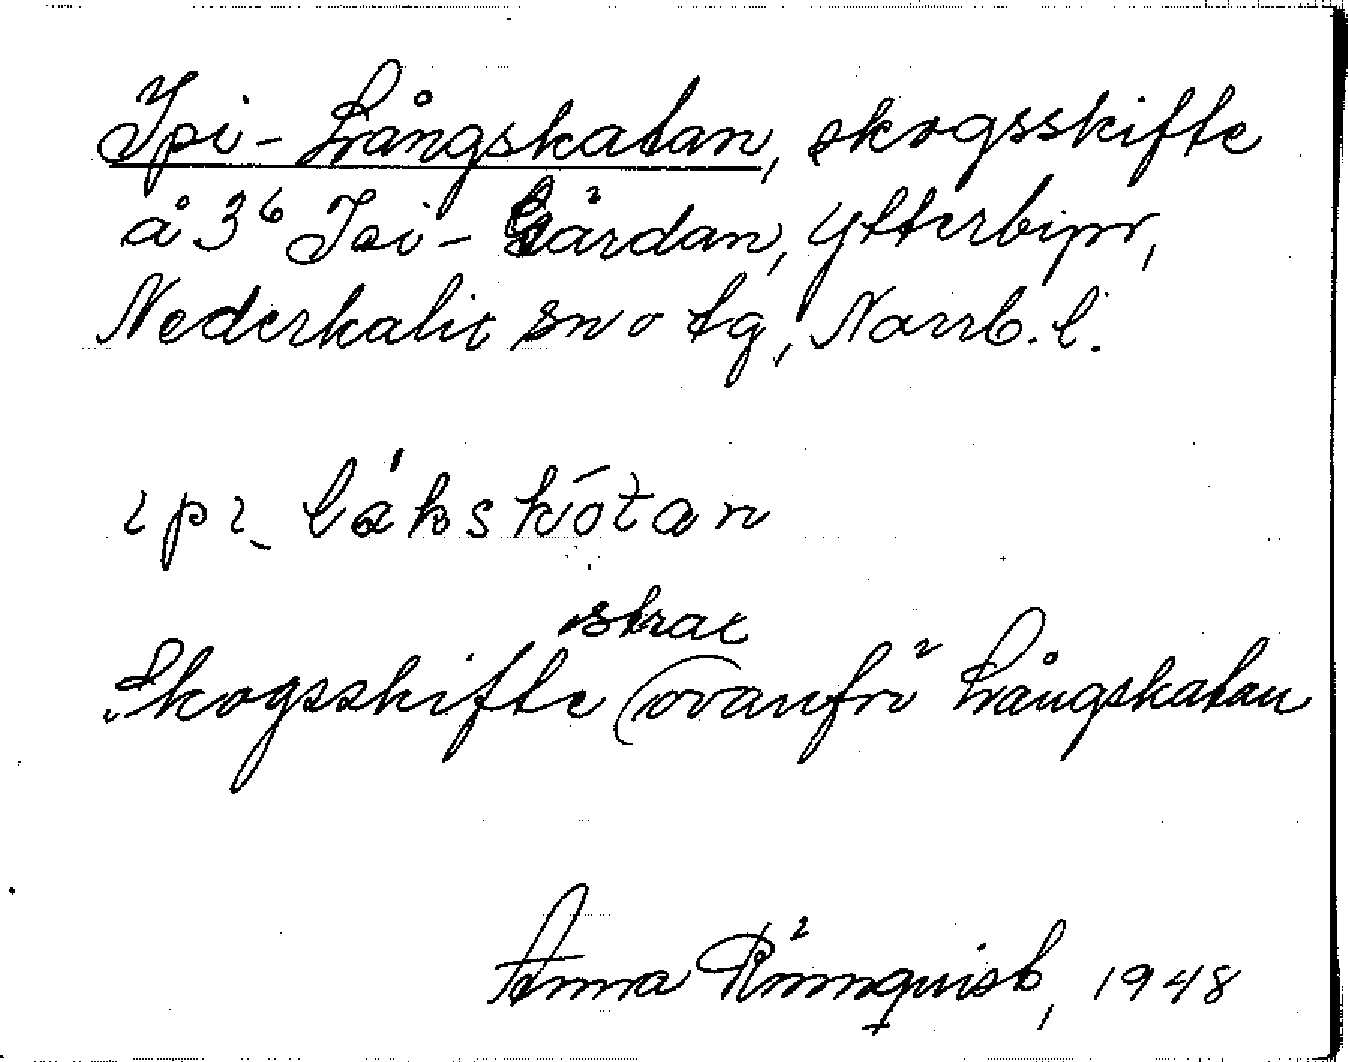 Ipi-Långskatan, skogsskifte
å 3⁶ Ipi-Gärdan, Ytterbyn,
Nederkalix sn o tg, Norrb. l.
ɩpɩ- låkskȯtan
strax
Skogsskifte ovanför Långskatan
Anna Rönnquist, 1948